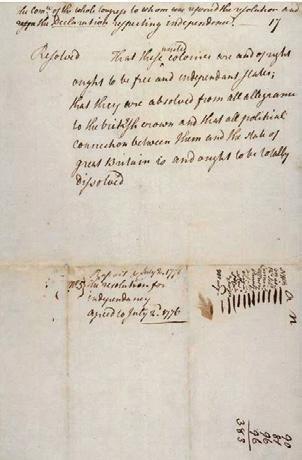 the Com.ee of the whole Congress to whom was referred the resolution and
the Declaration respecting independence. — 17
Resolved That these united colonies are and of right
ought to be free and independant states;
that they are absolved from all allegiance
to the british crown and that all political
connection between them and the state of
great Britain is and ought to be totally
dissolved
Report &
July 2. 1776
the resolution for
independancy
agreed to July 2. 1776
90
96
383